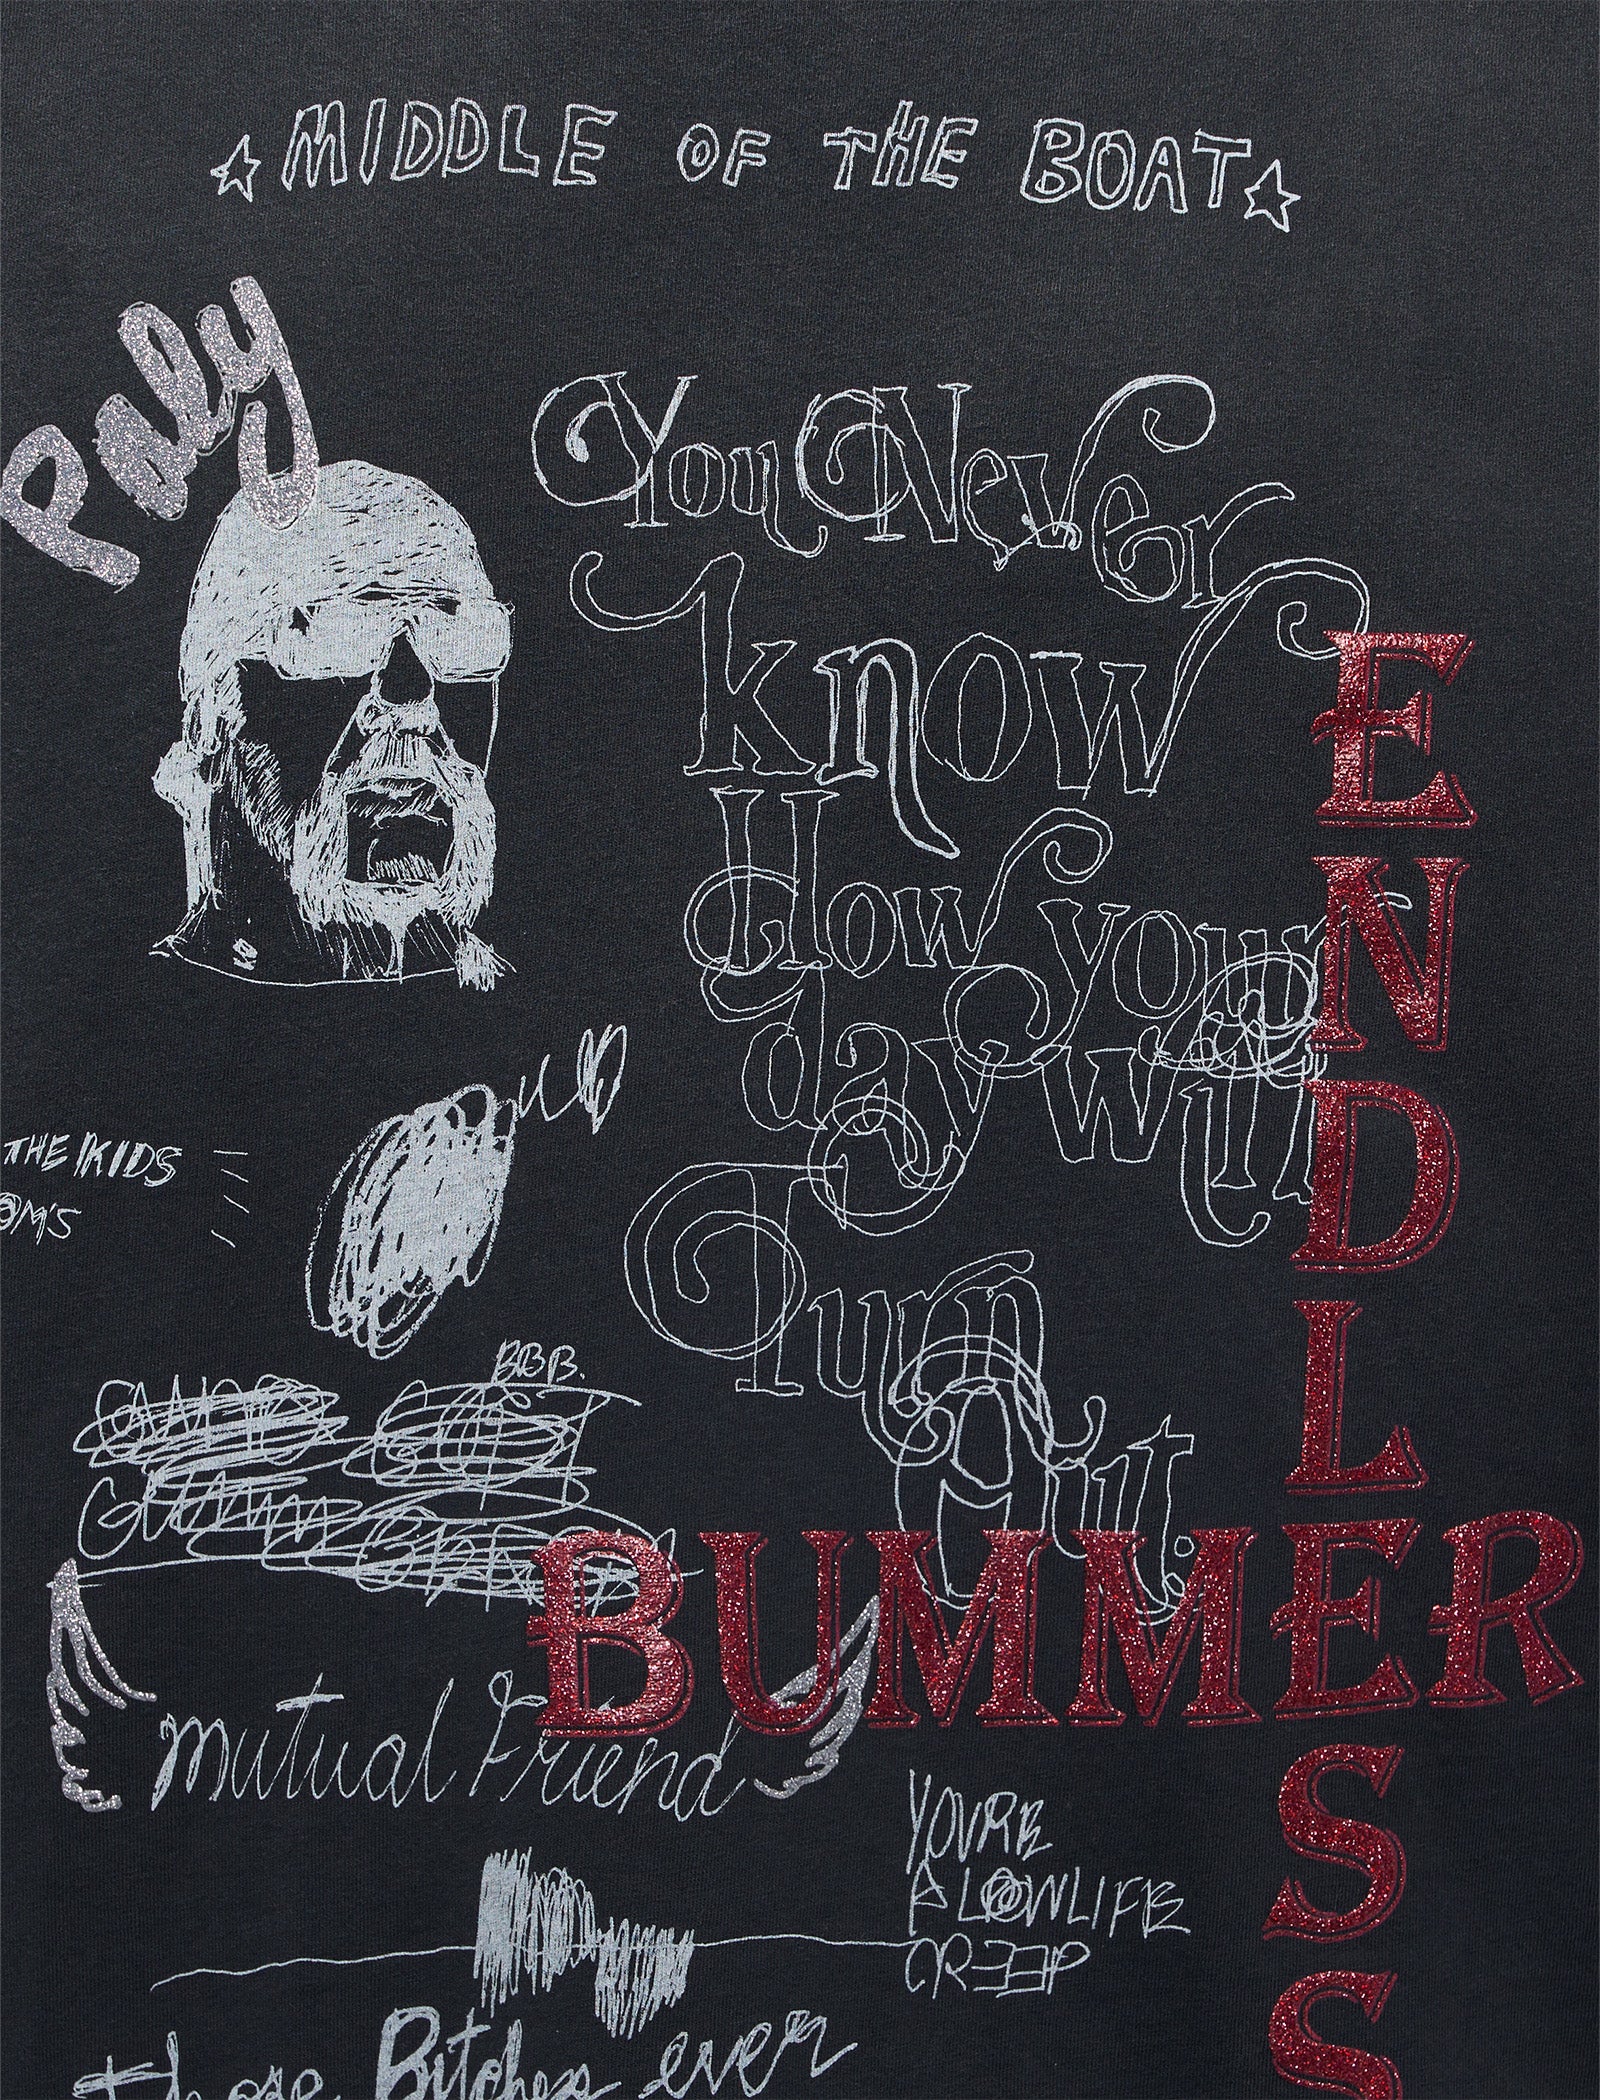 MIDDLE OF THE BOAT
Paly
You Never
know
How your
day will
Turn
Out.
ENDLESS
BUMMER
THE KIDS
OM'S
BBB.
Mutual Friend
YOU'RE
A LOWLIFE
CREEP
those Bitches ever